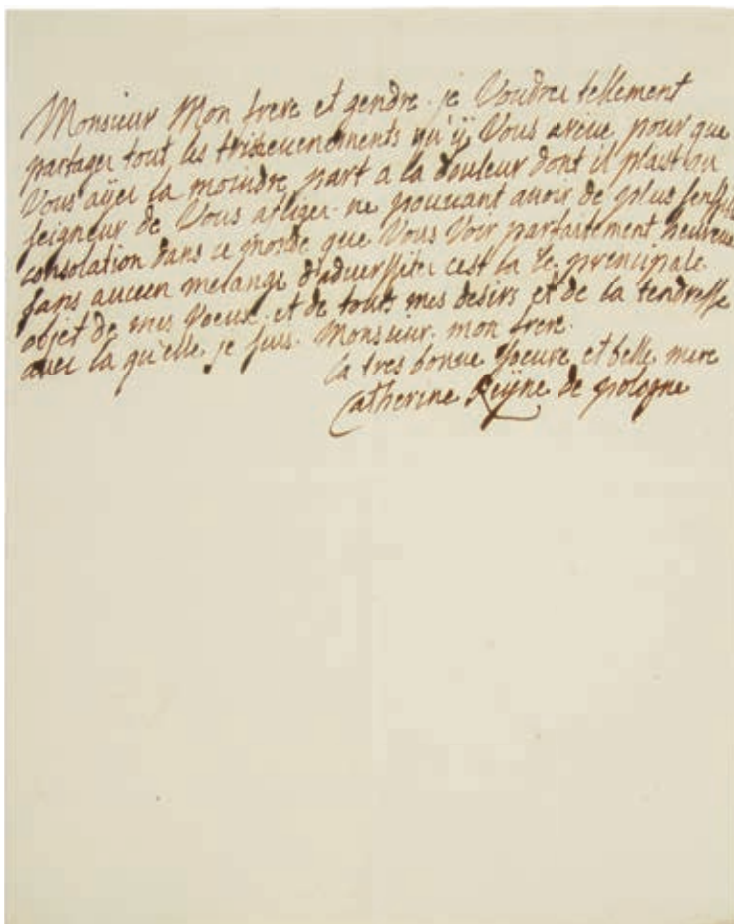 Monsieur Mon frere et gendre je Voudres tellement
partager tout les tristeuenements qu'ÿ Vous arive pour que
Vous aÿes la moindre part a la douleur dont il plast au
seigneur de Vous afliger ne pouuant auoir de plus
consolation dans ce monde que Vous Voir parfaitement heureux
sans aucun melange d'aduerssites cest la Le principale
objet de mes Voeux et de touts mes desirs et de la tendresse
avec la qu'elle je suis Monsieur mon frere
la tres bonne Soeure et belle mere
Catherine Reÿne de pologne